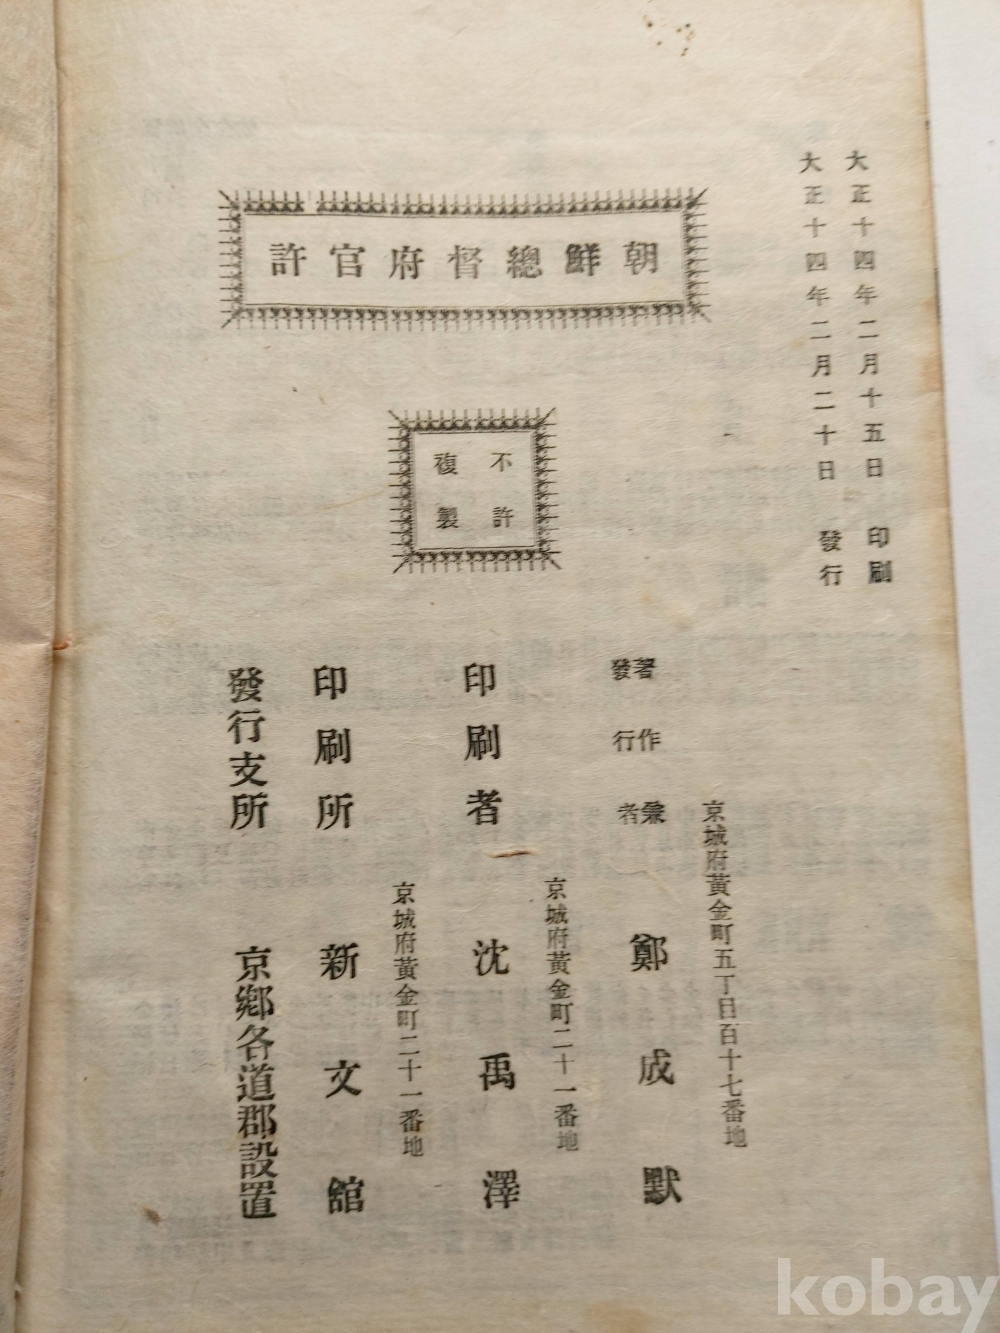 大正十四年二月十五日 印刷
大正十四年二月二十日 發行
朝鮮總督府官許
不許
複製
京城府黃金町五丁目百十七番地
著作兼
發行者
鄭成默
京城府黃金町二十一番地
印刷者 沈禹澤
京城府黃金町二十一番地
印刷所 新文館
發行支所 京鄉各道郡設置
kobay